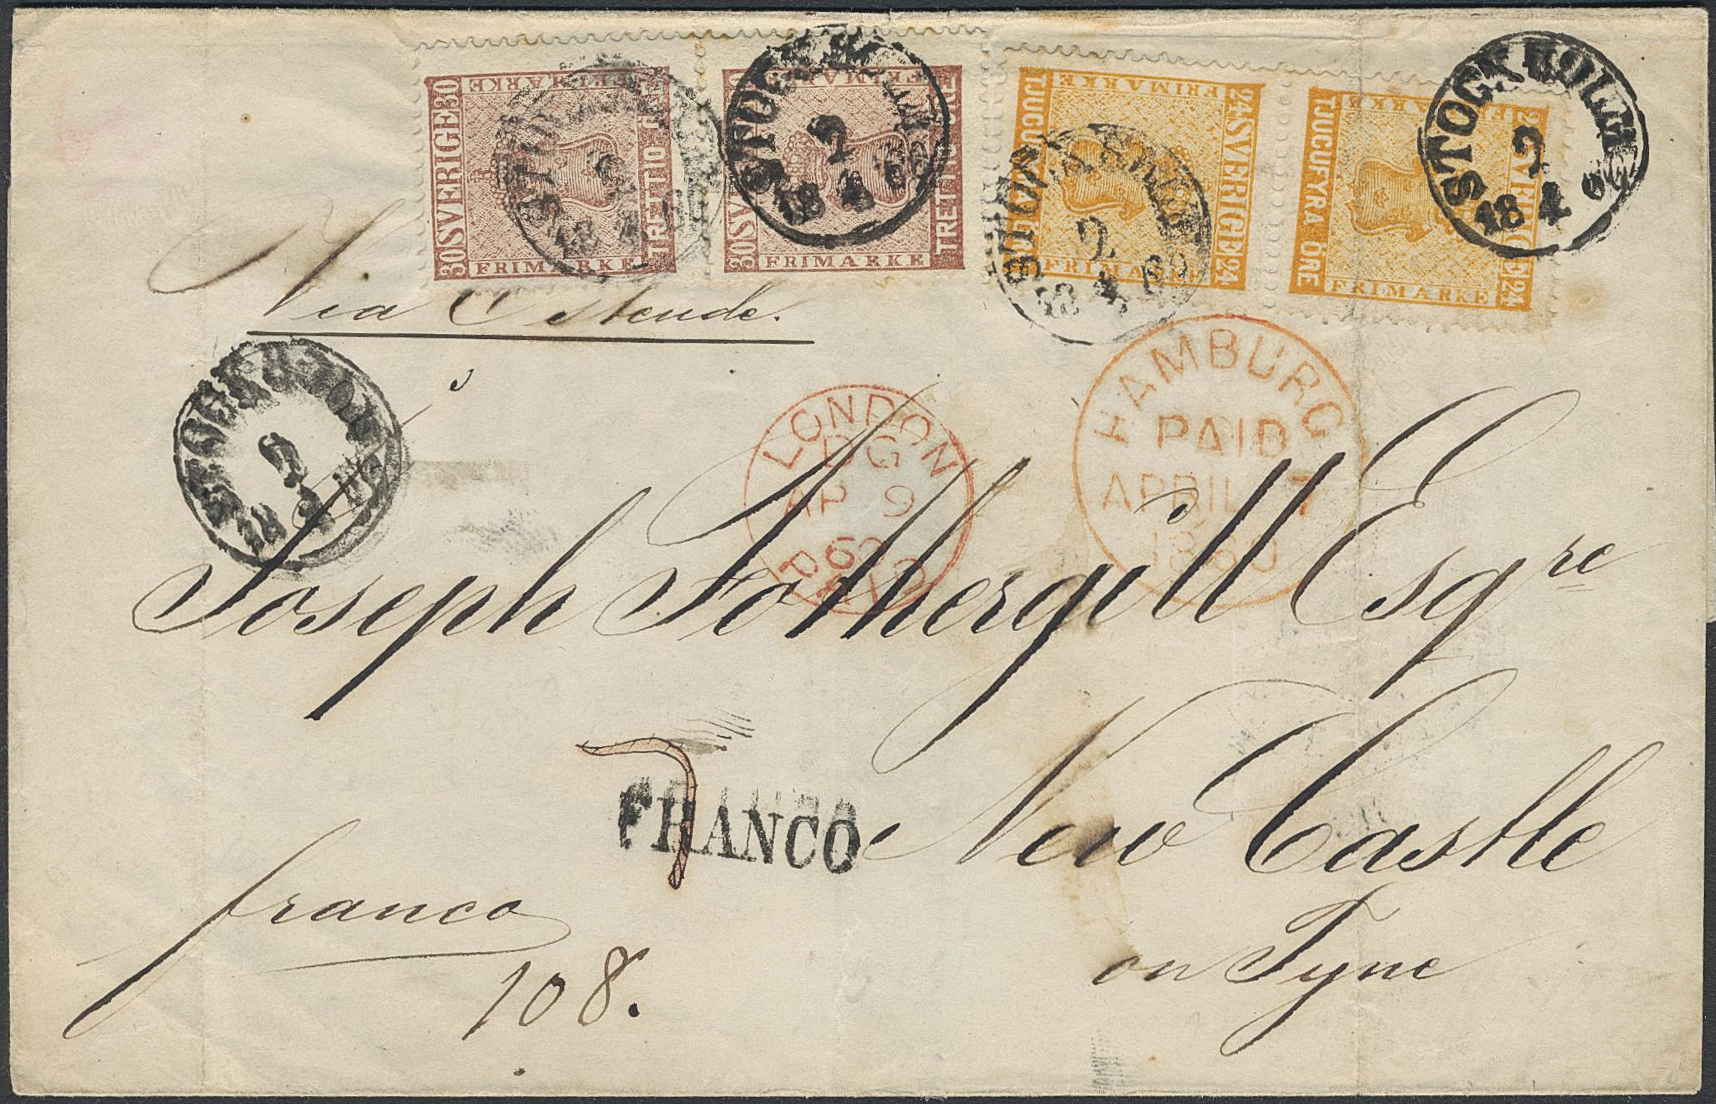 30 SVERIGE 30
FRIMARKE
TRETTIO
FRIMARKE
30 SVERIGE
FRIMARKE
TRETTIO ÖRE
FRIMARKE
24 SVERIGE 24
FRIMARKE
TJUGUFYRA
FRIMARKE
24 SVERIGE 24
FRIMARKE
TJUGUFYRA ÖRE
FRIMARKE
STOCKHOLM
2
18 4 60
STOCKHOLM
2
18 4 60
STOCKHOLM
2
18 4 60
STOCKHOLM
2
18 4 60
Via Ostende.
STOCKHOLM
2
18 4
LONDON
DG
AP 9
60
PAID
HAMBURG
PAID
APRIL 7
1860
Joseph Fothergill Esqre
7
FRANCO
New Castle
on Tyne
franco
108.